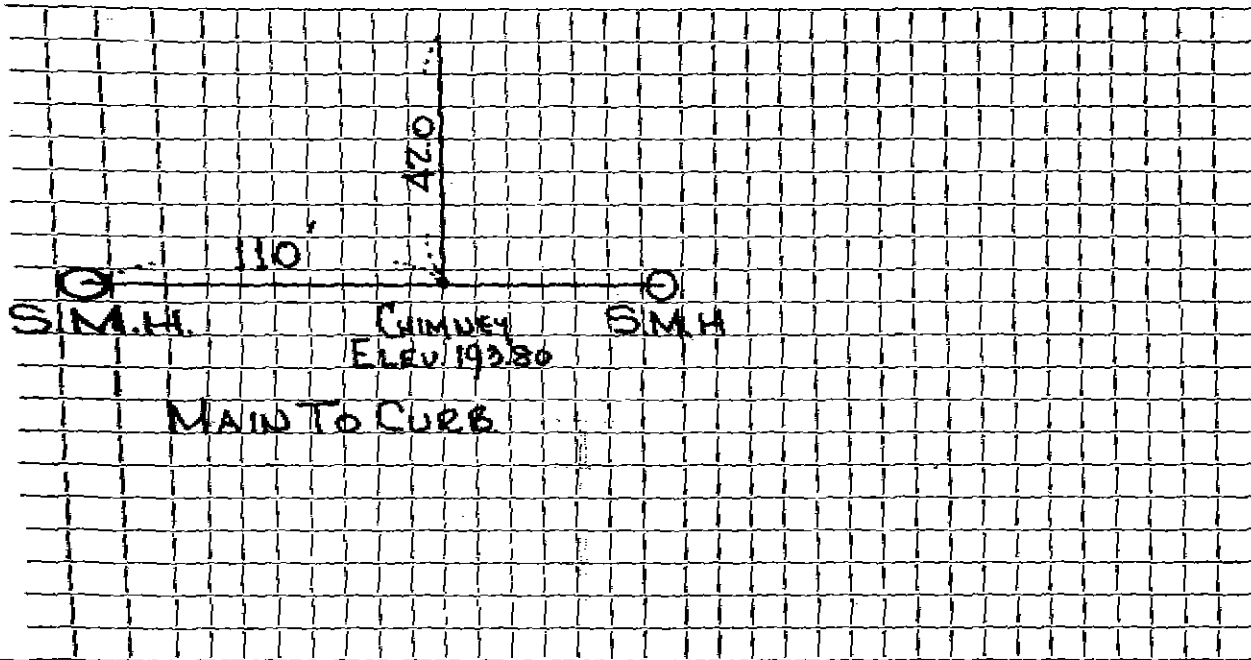 42.0
110'
S.M.H.
CHIMNEY
ELEV. 193.80
S.M.H
MAIN TO CURB